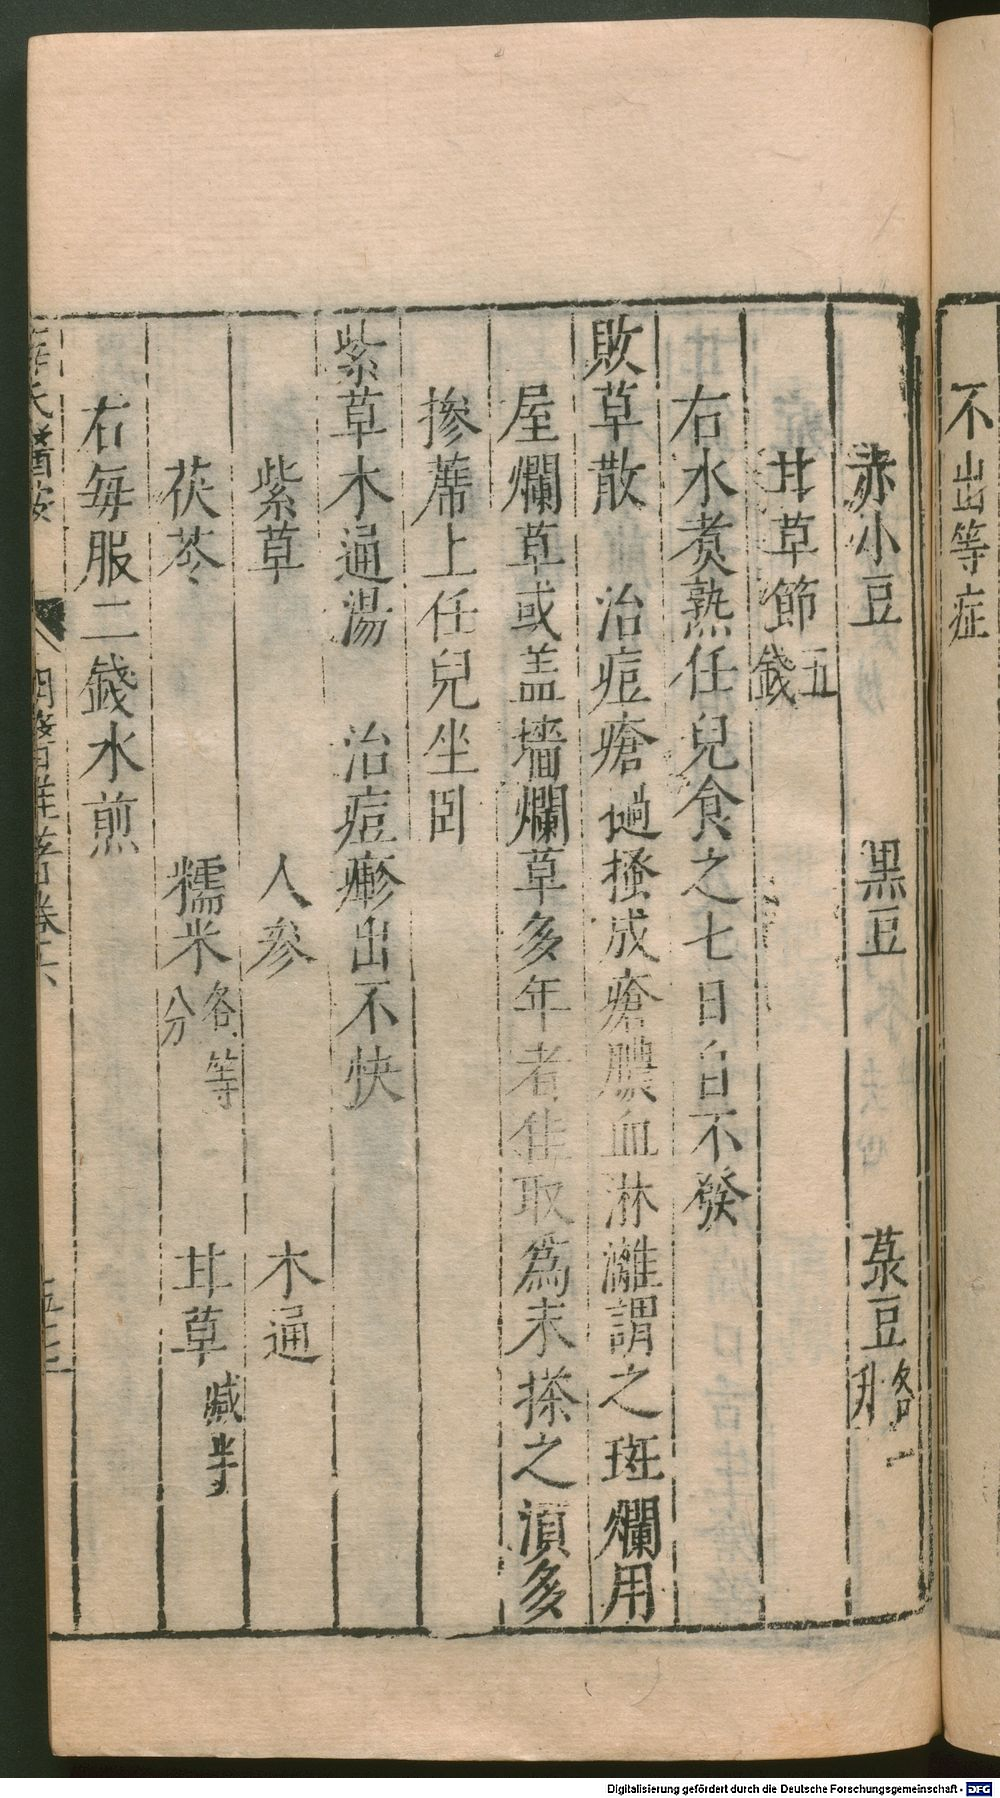 不出等症
赤小豆 黒豆 菉豆各一升
甘草節五錢
右水煮熟任兒食之七日自不發
敗草散 治痘瘡過搔成瘡膿血淋漓謂之斑爛用
屋爛草或盖墻爛草多年者佳取為末搽之湏多
摻蓆上任兒坐卧
紫草木通湯 治痘疹出不快
紫草 人參 木通
茯苓 糯米各等分 甘草减半
右每服二錢水煎
氏醫按 卷六
Digitalisierung gefördert durch die Deutsche Forschungsgemeinschaft - DFG